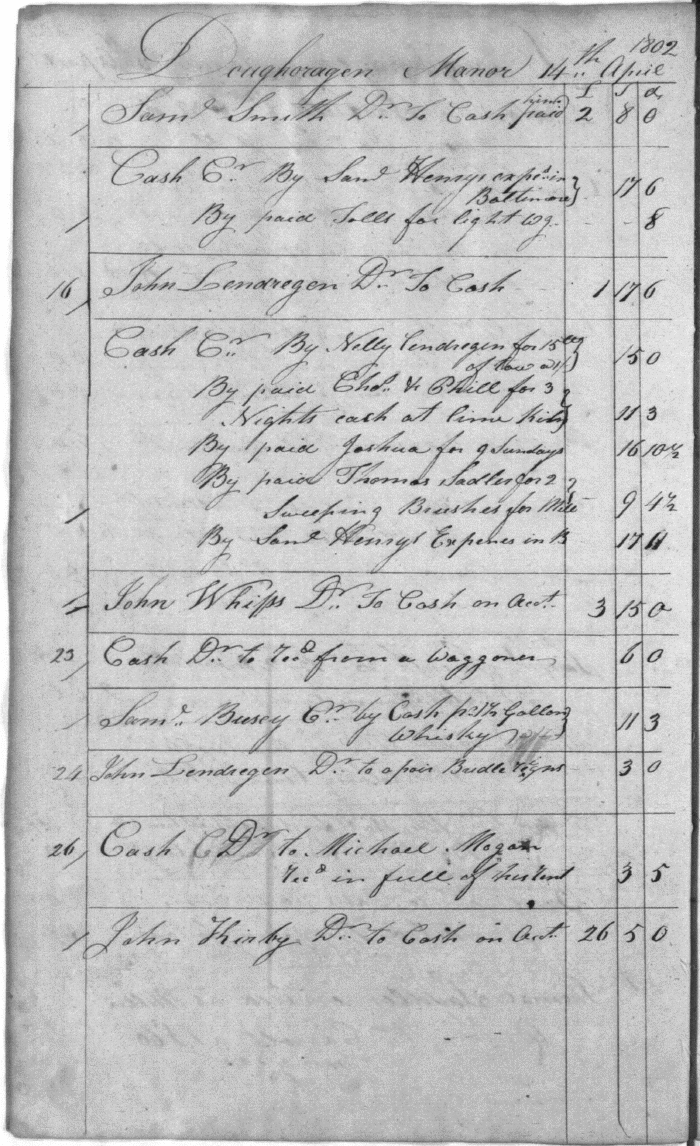 1802
Doughoragen Manor 14th April
£ s d
Sam.l Smith Dr. To Cash paid 2 8 0
Cash Cr. By Sam.l Henrys exps. in
Baltimore} 17 6
By paid Tolls for light Wg. - - 8
16 John Lendregen Dr. To Cash 1 17 6
Cash Cr. By Nelly Lendregen for 15
of Tow a 1/} 15 0
By paid Chs. & Phill for 3
Nights cash at lime Kiln} 11 3
By paid Joshua for 9 Sundays 16 10½
By paid Thomas Sadler for 2
Sweeping Brushes for Mill 9 4½
By Sam.l Henrys Expences in B 17
John Whips Dr. To Cash on Acct. 3 15 0
23 Cash Dr. to recd from a Waggoner 6 0
Sam.l Busey Cr. by Cash pr 1½ Gallon
Whisky} 11 3
24 John Lendregen Dr. to a pair Bridle reigns 3 0
26 Cash Dr. to Michael Mogan
recd in full of his rent 3 5
John Kirby Dr. to Cash on Acct. 26 5 0